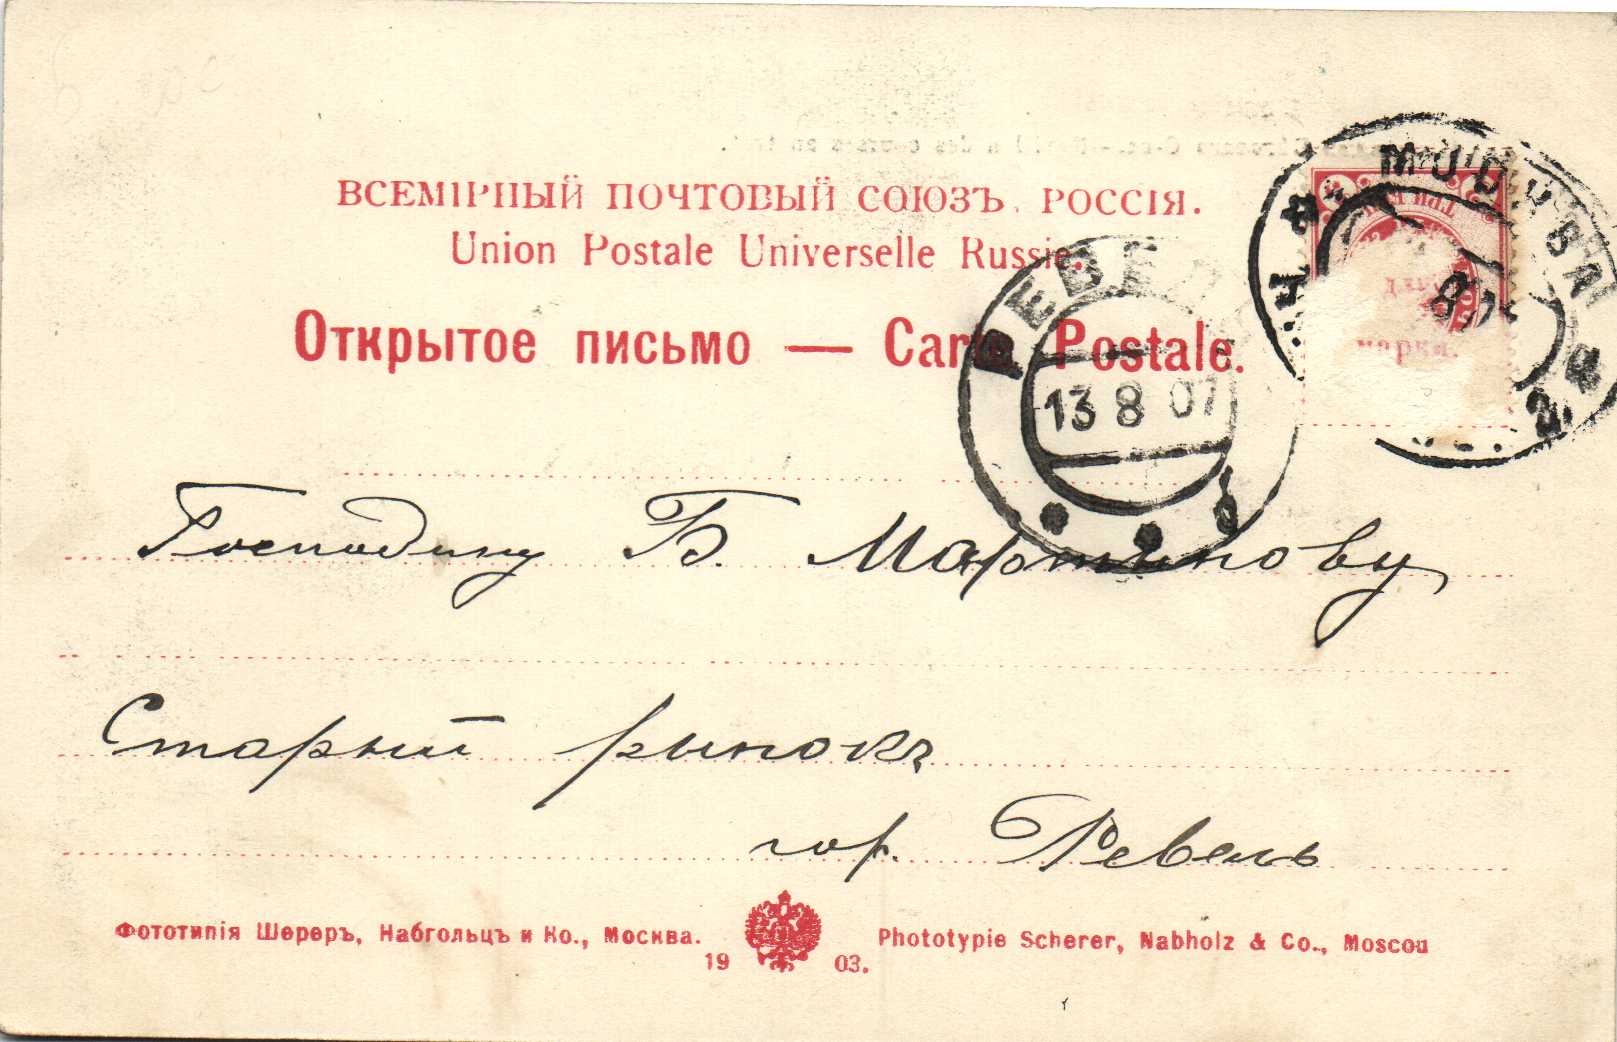 ВСЕМІРНЫЙ ПОЧТОВЫЙ СОЮЗЪ. РОССІЯ.
Union Postale Universelle Russie.
Открытое письмо — Carte Postale.
МОСКВА
ТРИ КОП
для
марки.
РЕВЕЛЬ
13 8 07
Господину Б. Мартынову
Старый рынокъ
гор. Ревель
Фототипія Шереръ, Набгольцъ и Ко., Москва.
Phototypie Scherer, Nabholz & Co., Moscou
19 03.